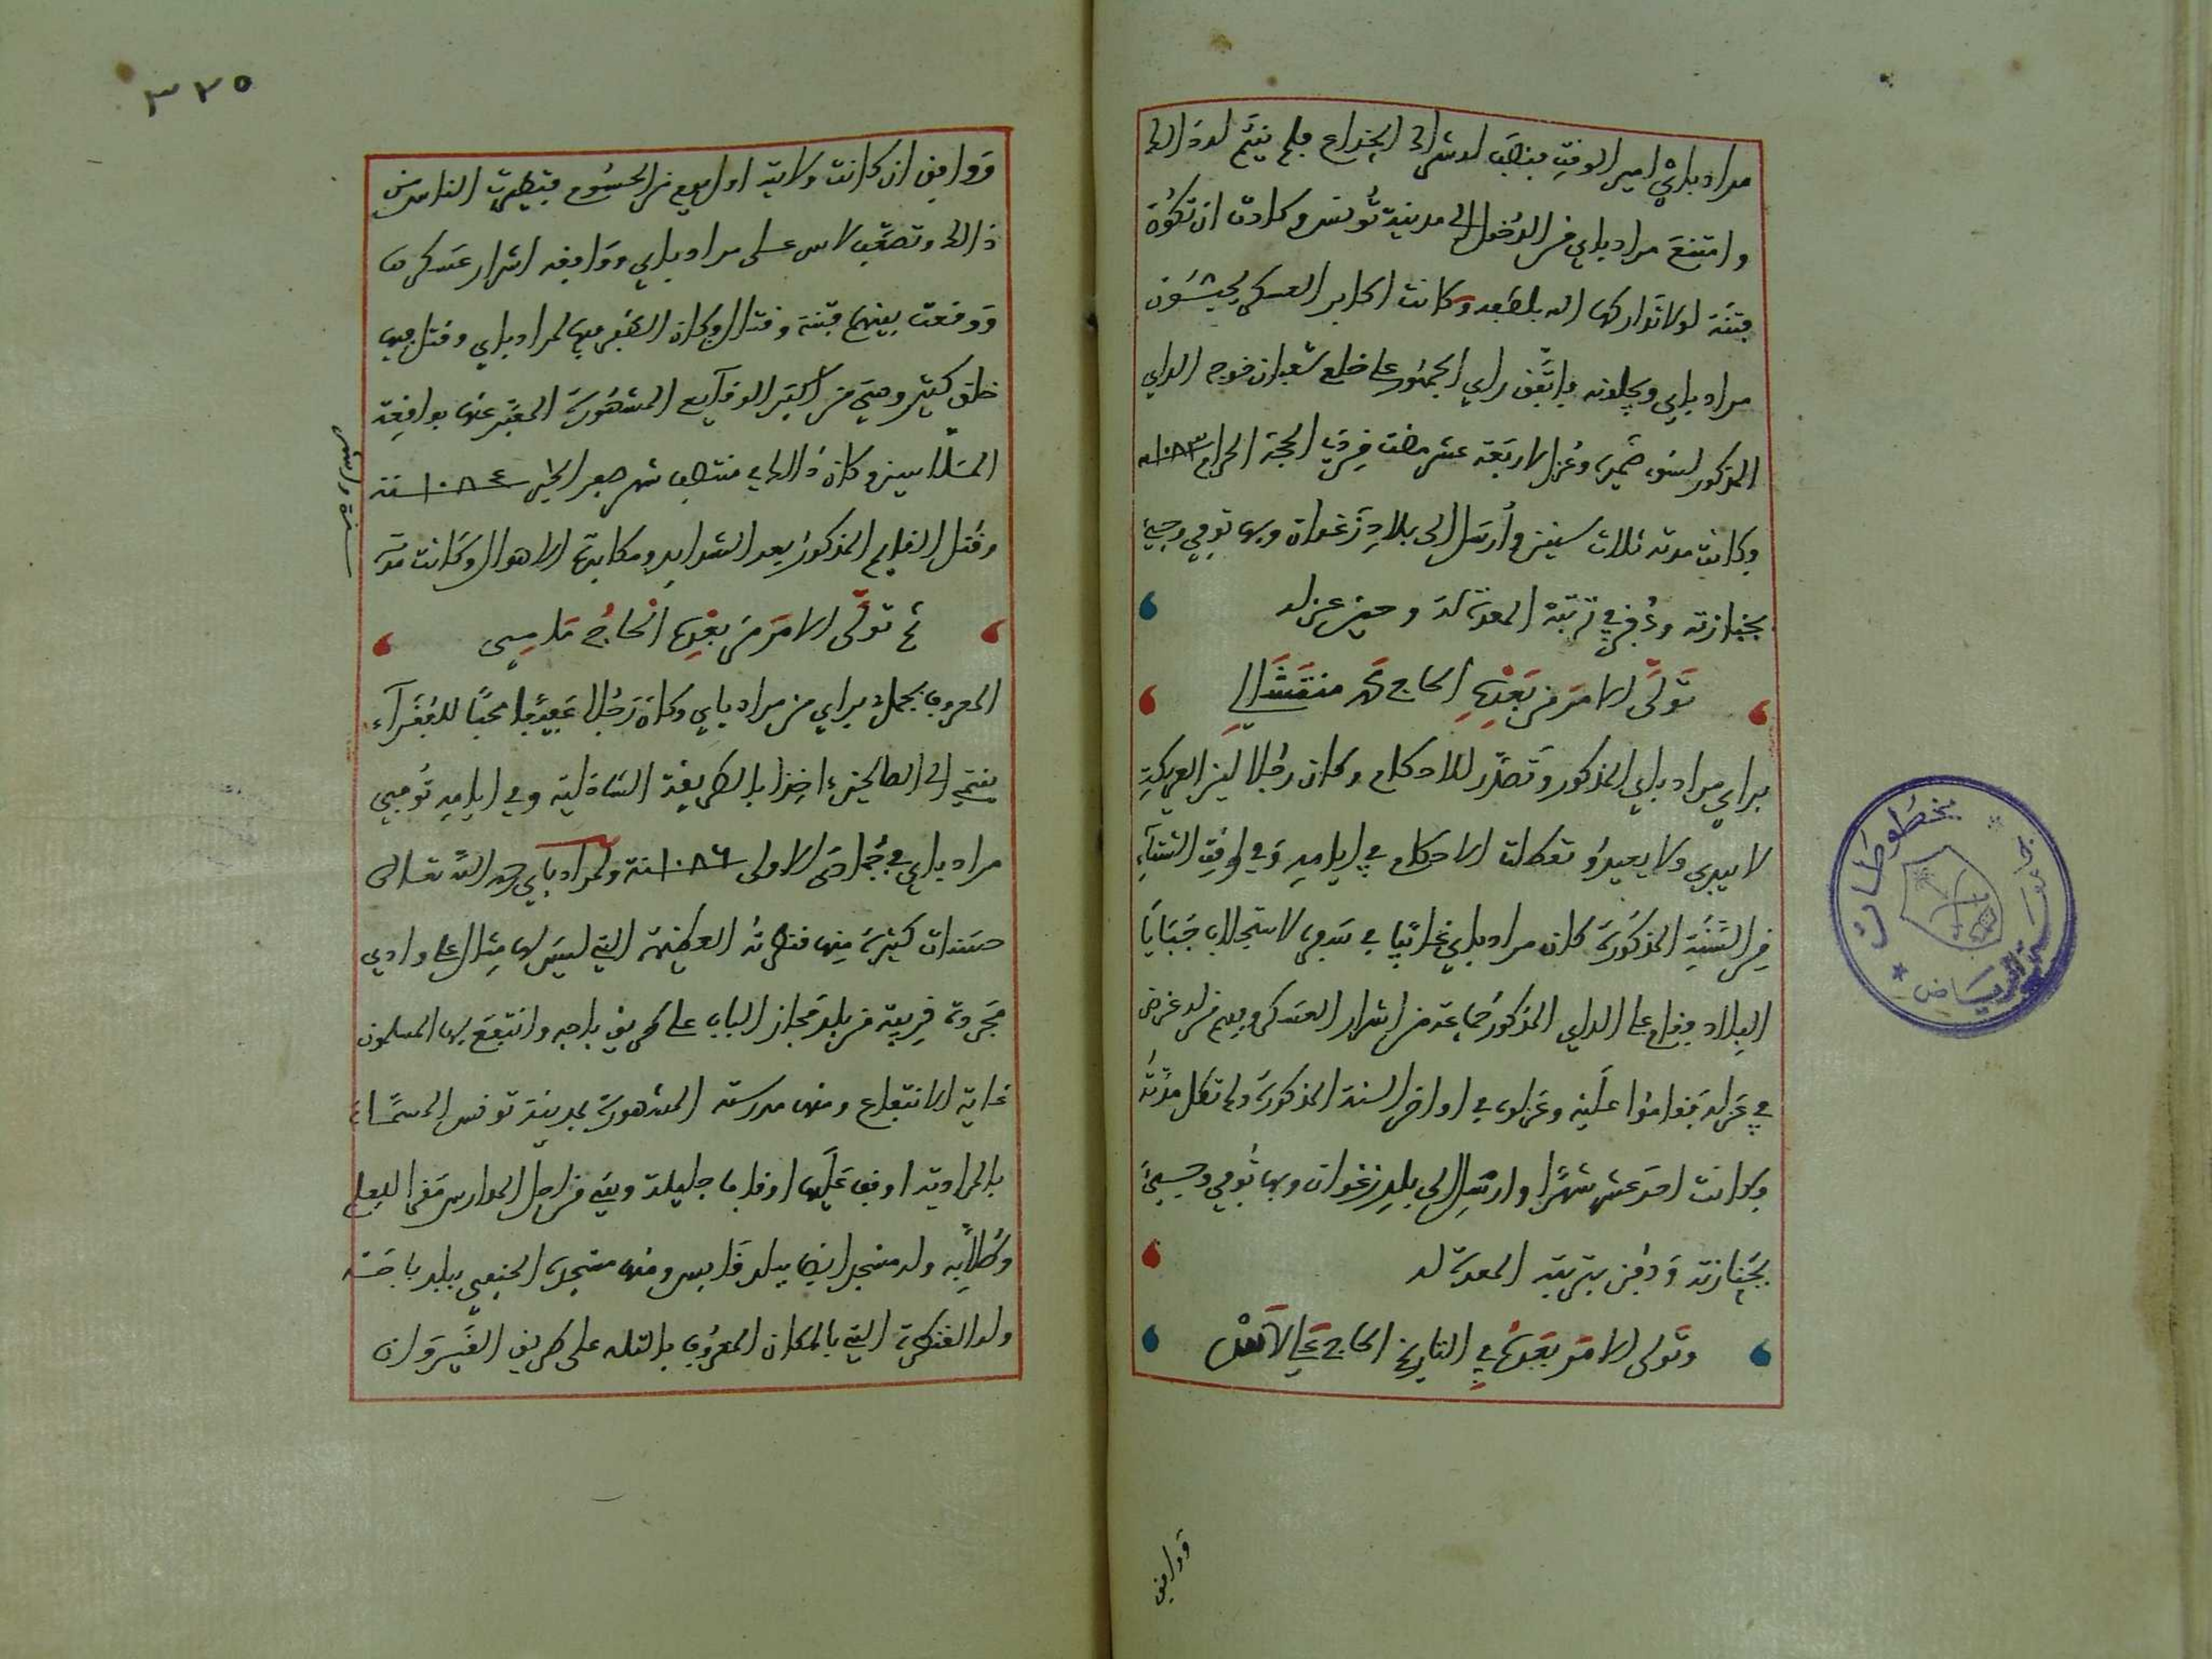 مراد باي امير الوقت فنصب له شراك الخداع فلم يتم له ذالك
وامتنع مراد باي من الدخول الى مدينة تونس وكادت ان تكون
فتنة لولا تداركها الله بلطفه وكانت اكابر العسكر يحبون
مراد باي ويجلونه فاتفق راي الجمهور على خلع شعبان خوجه الداي
المذكور لسوء ضميره وعزل لاربعة عشر مضت من ذي الحجة الحرام ١٠٨٣
وكانت مدته ثلاث سنين وأرسل الى بلاد زغوان وبها توفي وجيئ
بجنازته ودفن في تربته المعدة له وحين عزله
تولى الامر من بعده الحاج محمد منتشالي
براي مراد باي المذكور وتصدر للاحكام وكان رجلا لين العريكة
لا يبدي ولا يعيد وتعطلت الاحكام في ايامه وفي وقت الشتاء
من السنة المذكورة كان مراد باي غائبا في سفره لاستجلاب جبايا
البلاد فقام على الداي المذكور جماعة من اشرار العسكر وفيهم من له غرض
في عزله فقاموا عليه وعزلوه في اواخر السنة المذكورة ولم تطل مدته
وكانت احد عشر شهرا وارسل الى بلد زغوان وبها توفي وجيئ
بجنازته ودفن بتربته المعدة له
وتولى الامر بعده في التاريخ الحاج علي لاظ
ووافق
٣٢٥
ووافق ان كانت ولايته اول يوم من الحسوم فتطيرت الناس من
ذالك وتصعب لاس على مراد باي ووافقه اشرار عسكرها
ووقعت بينهم فتنة وقتال وكان الظفر فيها لمراد باي وقتل فيها
خلق كثير وهي من اكبر الوقايع المشهورة المعبر عنها بواقعة
الملاسين وكان ذالك في منتصف شهر صفر الخير ١٠٨٤ سنة
وقتل القايم المذكور بعد الشدايد ومكابدة الاهوال وكانت مدته
ثم تولى الامر من بعده الحاج مامي
المعروف بجمل براي من مراد باي وكان رجلا عفيفا محبا للفقرآء
ينتمي الى الصالحين ءاخذا بالطريقة الشاذلية وفي ايامه توفي
مراد باي في جمادى الاولى ١٠٨٦ سنة ولمراد باي رحمه الله تعالى
حسنات كثيرة منها قنطرته العظيمة التي ليس لها مثال على وادي
مجردة قريبة من بلد مجاز الباب على طريق باجه وانتفع بها المسلمون
غاية الانتفاع ومنها مدرسته المشهورة بمدينة تونس المسماة
بالمرادية اوقف عليها اوقافا جليلة وهي من اجل المدارس مقرا للعلم
وطلابه وله مسجد ايضا ببلد قابس ومنها مسجده الحنفي ببلد باجة
وله القنطرة التي بالمكان المعروف بالتله على طريق القيروان